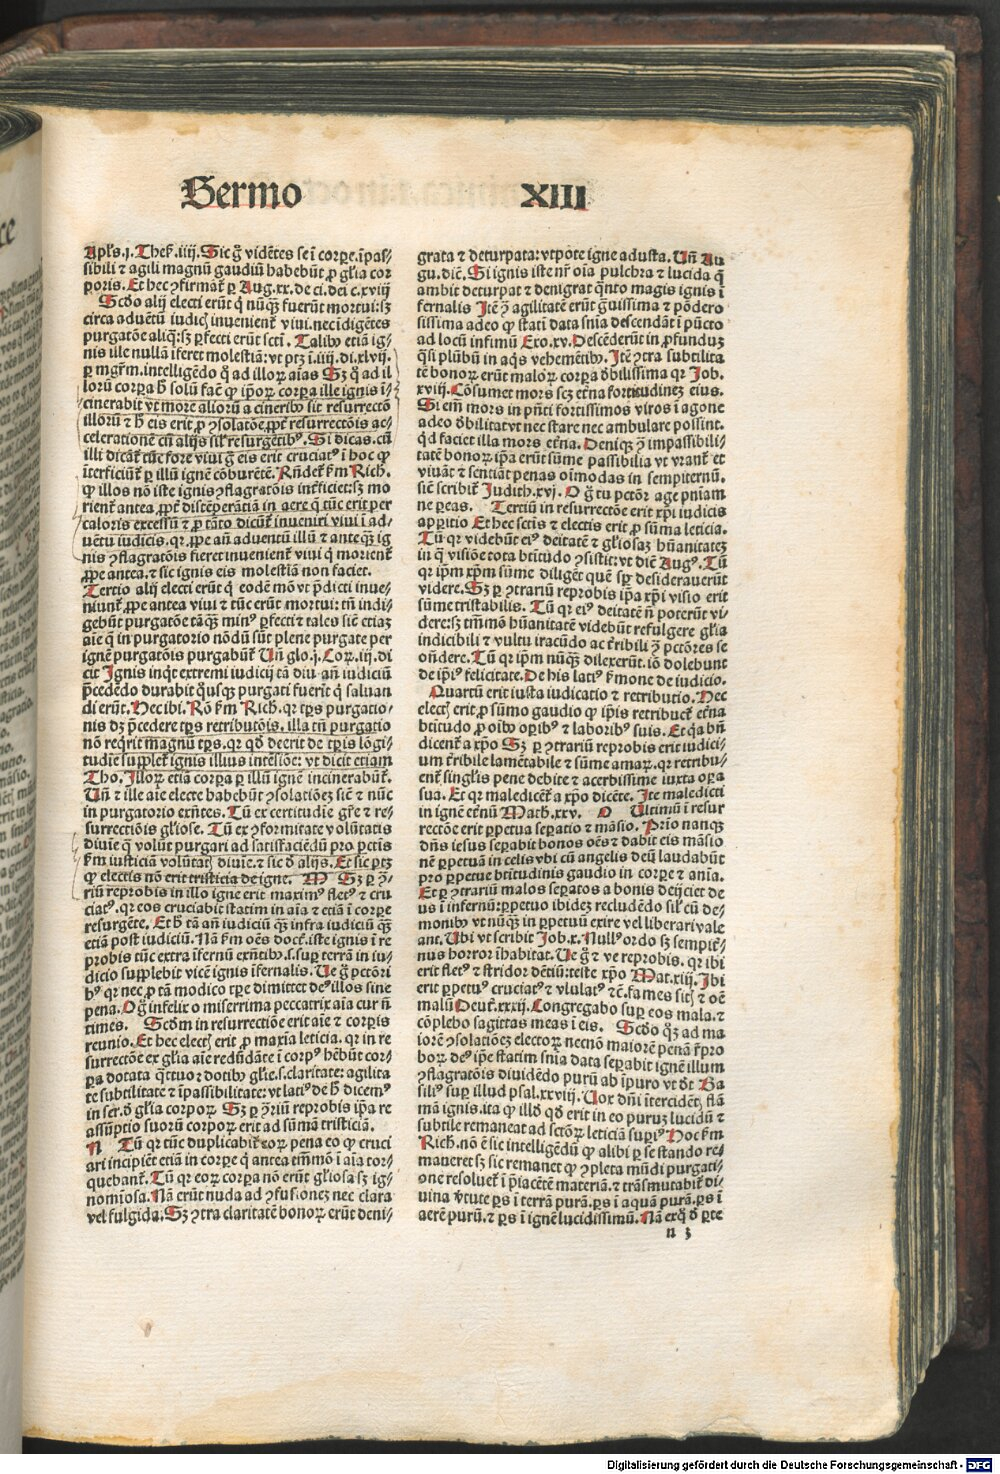 Sermo XIII
Apl's.j.Thes̄.iiij.Sic ḡ vidētes se ī corꝑe.īpas/
sibili ⁊ agili magnū gaudiū habebūt ꝓ gl'ia cor
poris.Et hec ꝯfirmat̄ ꝑ Aug.xx.de ci.dei c.xviij
Scd̄o alij electi erūt q̄ nūqȝ fuerūt mortui:sȝ
circa aduētū iudicꝭ inuenient̄ viui.nec īdigētes
purgatōe aliq̄:sȝ ꝑfecti erūt sctī. Talibꝰ etiā ig/
nis ille nullā īferet molestiā:vt ptȝ ī.iiij.di.xlvij.
ꝑ mgr̄m.intelligēdo q̄ ad illoꝝ aīas Sȝ q̄ ad il
loꝝ corꝑa h̄ solū facit̄ ꝙ ip̄oꝝ corꝑa ille ignis ī/
cinerabit vt more alioꝝ a cineribꝰ sit resurrectō
illoꝝ ⁊ h̄ eis erit ꝓ ꝯsolatōe.ꝓpt̄ resurrectōis ac/
celerationē cū alijs sil̄ resurgētibꝰ. Si dicas.cū
illi dicāt̄ tūc fore viui ḡ eis erit cruciatꝰ ī hoc ꝙ
īterficiūt̄ ꝑ illū ignē cōburētē. Rn̄det̄ ẜm Rich.
ꝙ illos nō iste ignis ꝯflagratōis int̄ficiet:sȝ mo
rient̄ antea.ꝓpt̄ discēꝑantiā in aere q̄ tūc erit per
caloris excessū ⁊ ꝓ tāto dicūt̄ inueniri viui ī ad/
uētu iudicis.qr ꝓpe an̄ aduentū illū ⁊ anteqȝ ig
nis ꝯflagratōis fieret inuenient̄ viui q̄ morient̄
ꝓpe antea.⁊ sic ignis eis molestiā non faciet.
Tertio alij electi erūt q̄ eodē mō vt p̄dicti inue/
niunt̄ ꝓpe antea viui ⁊ tūc erūt mortui:tn̄ indi/
gebūt purgatōe tāqȝ minꝰ ꝑfecti ⁊ tales siē etiaȝ
aīe q̄ in purgatorio nōdū sūt plene purgate per
ignē purgatōis purgabūt̄ Un̄ glo.j.Coꝝ.iij.di
cit Ignis inqt̄ extremi iudicij tā diu an̄ iudiciū
p̄cedēdo durabit q̄usqȝ purgati fuerīt q̄ saluan
di erūt.Hec ibi. Rō ẜm Rich.qr tꝑs purgatio/
nis dȝ p̄cedere tꝑs retributōis.illa tn̄ purgatio
nō req̄rit magnū tꝑs.qr qd̄ deerit de tꝑis lōgi/
tudīe supplet̄ ignis illius intēsiōe:vt dicit etiam
Tho.Illoꝝ etiā corꝑa ꝑ illū ignē incinerabūt̄.
Un̄ ⁊ ille aīe electe habebūt ꝯsolatiōeȝ siē ⁊ nūc
in purgatorio exn̄tes. Tū ex certitudīe gr̄e ⁊ re/
surrectiōis gl'iose. Tū ex ꝯformitate volūtatis
diuīe q̄ volūt purgari ad satisfaciēdū pro pctīs
ẜm iusticiā volūtatꝭ diuīe.⁊ sic d̄ alijs.Et sic ptȝ
ꝙ electis nō erit tristicia de igne. M Sȝ ꝑ ꝯ̄/
riū reprobis in illo igne erit maximꝰ fletꝰ ⁊ cru
ciatꝰ.qr eos cruciabit statim in aīa ⁊ etiā ī corꝑe
resurgēte. Et h̄ tā an̄ iudiciū qȝ infra iudiciū qȝ
etiā post iudiciū. Nā ẜm oēs doct̄.iste ignis ī re
probis tūc extra īfernū exn̄tibꝰ.s.suꝑ terrā in iu/
dicio supplebit vicē ignis īfernalis. Ue ḡ pctōri
bꝰ qr nec ꝓ tā modico tꝑe dimittet deꝰ illos sine
pena.O ḡ infelix o miserrima peccatrix aīa cur n̄
times. Scd̄m in resurrectiōe erit aīe ⁊ corꝑis
reunio.Et hec electꝭ erit ꝓ maxīa leticia.qr in re
surrectōe ex gl'ia aīe redūdāte ī corpꝰ hēbūt cor/
ꝑa dotata q̄ttuor dotibꝰ gl'ie.s.claritate:agilita
te subtilitate ⁊ īpassibilitate:vt latiꝰ de h̄ dicemꝰ
in ser.d̄ gl'ia corpoꝝ Sȝ ꝑ ꝯriū reprobis ip̄a re
assūptio suoꝝ corpoꝝ erit ad sūmā tristiciā.
N Tū qr tūc duplicabit̄ eoꝝ pena eo ꝙ cruci
ari incipiēt etiā in corꝑe q̄ antea tm̄mō ī aīa tor/
quebant̄.Tū qr eoꝝ corꝑa nō erūt gl'iosa sȝ ig/
nomīosa.Nā erūt nuda ad ꝯfusioneȝ nec clara
vel fulgida.Sȝ ꝯtra claritatē bonoꝝ erūt deni/
grata ⁊ deturpata:vtpote igne adusta. Un̄ Au
gu.dic̄.Si ignis iste nr̄ oīa pulchra ⁊ lucida q̄
ambit deturpat ⁊ denigrat q̄nto magis ignis ī
fernalis Itē ꝯ̄ agilitatē erūt ḡuissima ⁊ pōdero
sissima adeo ꝙ statī data sn̄ia descendāt ī pūcto
ad locū infimū Exo.xv.Descēderūt in ꝓfunduȝ
q̄si plūbū in aq̄s vehemētibꝰ.Itē ꝯtra subtilita
tē bonoꝝ erūt maloꝝ corꝑa d̄bilissima qr Job.
xviij.Cōsumet mors scȝ et̄na fortitudineȝ eius.
Si em̄ mors in pn̄ti fortissimos viros ī agone
adeo d̄bilitat vt nec stare nec ambulare possint.
qd̄ faciet illa mors et̄na.Deniqȝ ꝯ̄ impassibili/
tatē bonoꝝ ip̄a erūt sūme passibilia vt vrant̄ et
viuāt ⁊ sentiāt penas oīmodas in sempiternū.
siē scribit̄ Judith.xvj. O ḡ tu pctōr age pn̄iam
ne ꝑeas. Tertiū in resurrectōe erit xp̄i iudicis
apꝑitio Et hec sctīs ⁊ electis erit ꝓ sūma leticia.
Tū qr videbūt eiꝰ deitatē ⁊ gl'iosaȝ hūanitateȝ
in q̄ visiōe tota btītudo ꝯsistit:vt dic̄ Augꝰ. Tū
qr ip̄m xp̄m sūme diligēt quē sꝑ desiderauerūt
videre.Sȝ ꝑ ꝯtrariū reprobis ip̄a xp̄i visio erit
sūme tristabilis. Tū qr eiꝰ deitatē n̄ poterūt vi/
dere:sȝ tm̄mō hūanitatē videbūt refulgere gl'ia
indicibili ⁊ vultu iracūdo ac t̄ribili ꝯ̄ pctōres se
on̄dere.Tū qr ip̄m nūqȝ dilexerūt.iō dolebunt
de ip̄iꝰ felicitate.De his latiꝰ ẜmone de iudicio.
Quartū erit iusta iudicatio ⁊ retributio. Hec
electꝭ erit ꝓ sūmo gaudio ꝙ ip̄is retribuet̄ et̄na
btītudo ꝓ oībꝰ oꝑibꝰ ⁊ laboribꝰ suis. Et q̄a bn̄
dicent̄ a xp̄o Sȝ ꝑ ꝯtrariū reprobis erit iudici/
um t̄ribile lamētabile ⁊ sūme amaꝝ.qr retribu/
ent̄ singl'is pene debite ⁊ acerbissime iuxta oꝑa
sua. Et qr maledicēt̄ a xp̄o dicēte. Ite maledicti
in ignē et̄nū Math.xxv. O Ultimū ī resur
rectōe erit ꝑpetua seꝑatio ⁊ māsio. Prīo nanqȝ
dn̄s iesus seꝑabit bonos oēs ⁊ dabit eis māsio
nē ꝑpetuā in celis vbi cū angelis deū laudabūt
pro ꝑpetue btītudinis gaudio in corꝑe ⁊ anīa.
Et ꝑ ꝯtrariū malos seꝑatos a bonis deijciet de
us ī infernū:ꝑpetuo ibideȝ recludēdo sil̄ cū de/
monibꝰ vt nūqȝ in ꝑpetuū exire vel liberari vale
ant. Ubi vt scribit Job.x.Nullꝰ ordo sȝ sempit̄/
nus horror īhabitat. Ue ḡ ⁊ ve reprobis.qr ibi
erit fletꝰ ⁊ stridor dētiū:teste xp̄o Mat.xiij. Ibi
erit ꝑpetuꝰ cruciatꝰ ⁊ vlulatꝰ ⁊ē.fames sitꝭ ⁊ oē
malū Deut̄.xxxij.Congregabo suꝑ eos mala.⁊
cōplebo sagittas meas ī eis. Scd̄o qȝ ad ma
iorē ꝯsolatiōeȝ electoꝝ necnō maiorē penā r̄pro
boꝝ deꝰ ip̄e statim sn̄ia data seꝑabit ignē illum
ꝯflagratōis diuidēdo purū ab īpuro vt d̄t Ba
siliꝰ suꝑ illud psal.xxviij. Uox dn̄i ītercidētꝭ flā
mā ignis.ita ꝙ ill'd qd̄ erit in eo puruȝ lucidū ⁊
subtile remaneat ad sctōꝝ leticiā suꝑiꝰ Hoc ẜm
Rich.nō ē sic intelligēdū ꝙ alibi ꝑ se stando re/
maneret sȝ sic remanet ꝙ ꝯpleta mūdi purgati/
one resoluet̄ ī p̄iacētē materiā.⁊ trāsmutabit̄ di/
uina v̄tute ꝑs ī terrā purā.ꝑs ī aquā purā.ꝑs ī
aerē purū.⁊ ꝑs ī ignē lucidissimū.Nā exq̄ d̄ ꝑte
n 3
Digitalisierung gefördert durch die Deutsche Forschungsgemeinschaft - DFG